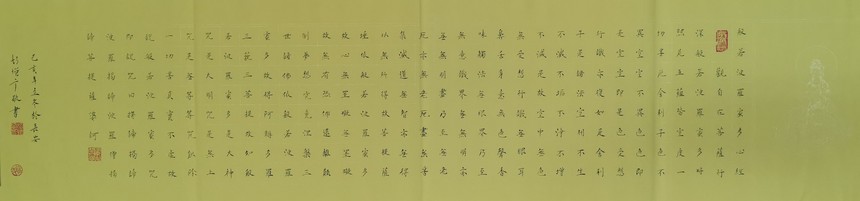 般若波羅蜜多心經
觀自在菩薩行
深般若波羅蜜多時
照見五蘊皆空度一
切苦厄舍利子色不
異空空不異色色即
是空空即是色受想
行識亦復如是舍利
子是諸法空相不生
不滅不垢不淨不增
不減是故空中無色
無受想行識無眼耳
鼻舌身意無色聲香
味觸法無眼界乃至
無意識界無無明亦
無無明盡乃至無老
死亦無老死盡無苦
集滅道無智亦無得
以無所得故菩提薩
埵依般若波羅蜜多
故心無罣礙無罣礙
故無有恐怖遠離顛
倒夢想究竟涅槃三
世諸佛依般若波羅
蜜多故得阿耨多羅
三藐三菩提故知般
若波羅蜜多是大神
咒是大明咒是無上
咒是無等等咒能除
一切苦真實不虛故
說般若波羅蜜多咒
即說咒曰揭諦揭諦
波羅揭諦波羅僧揭
諦菩提薩婆訶
己亥年立冬於長安
敬書